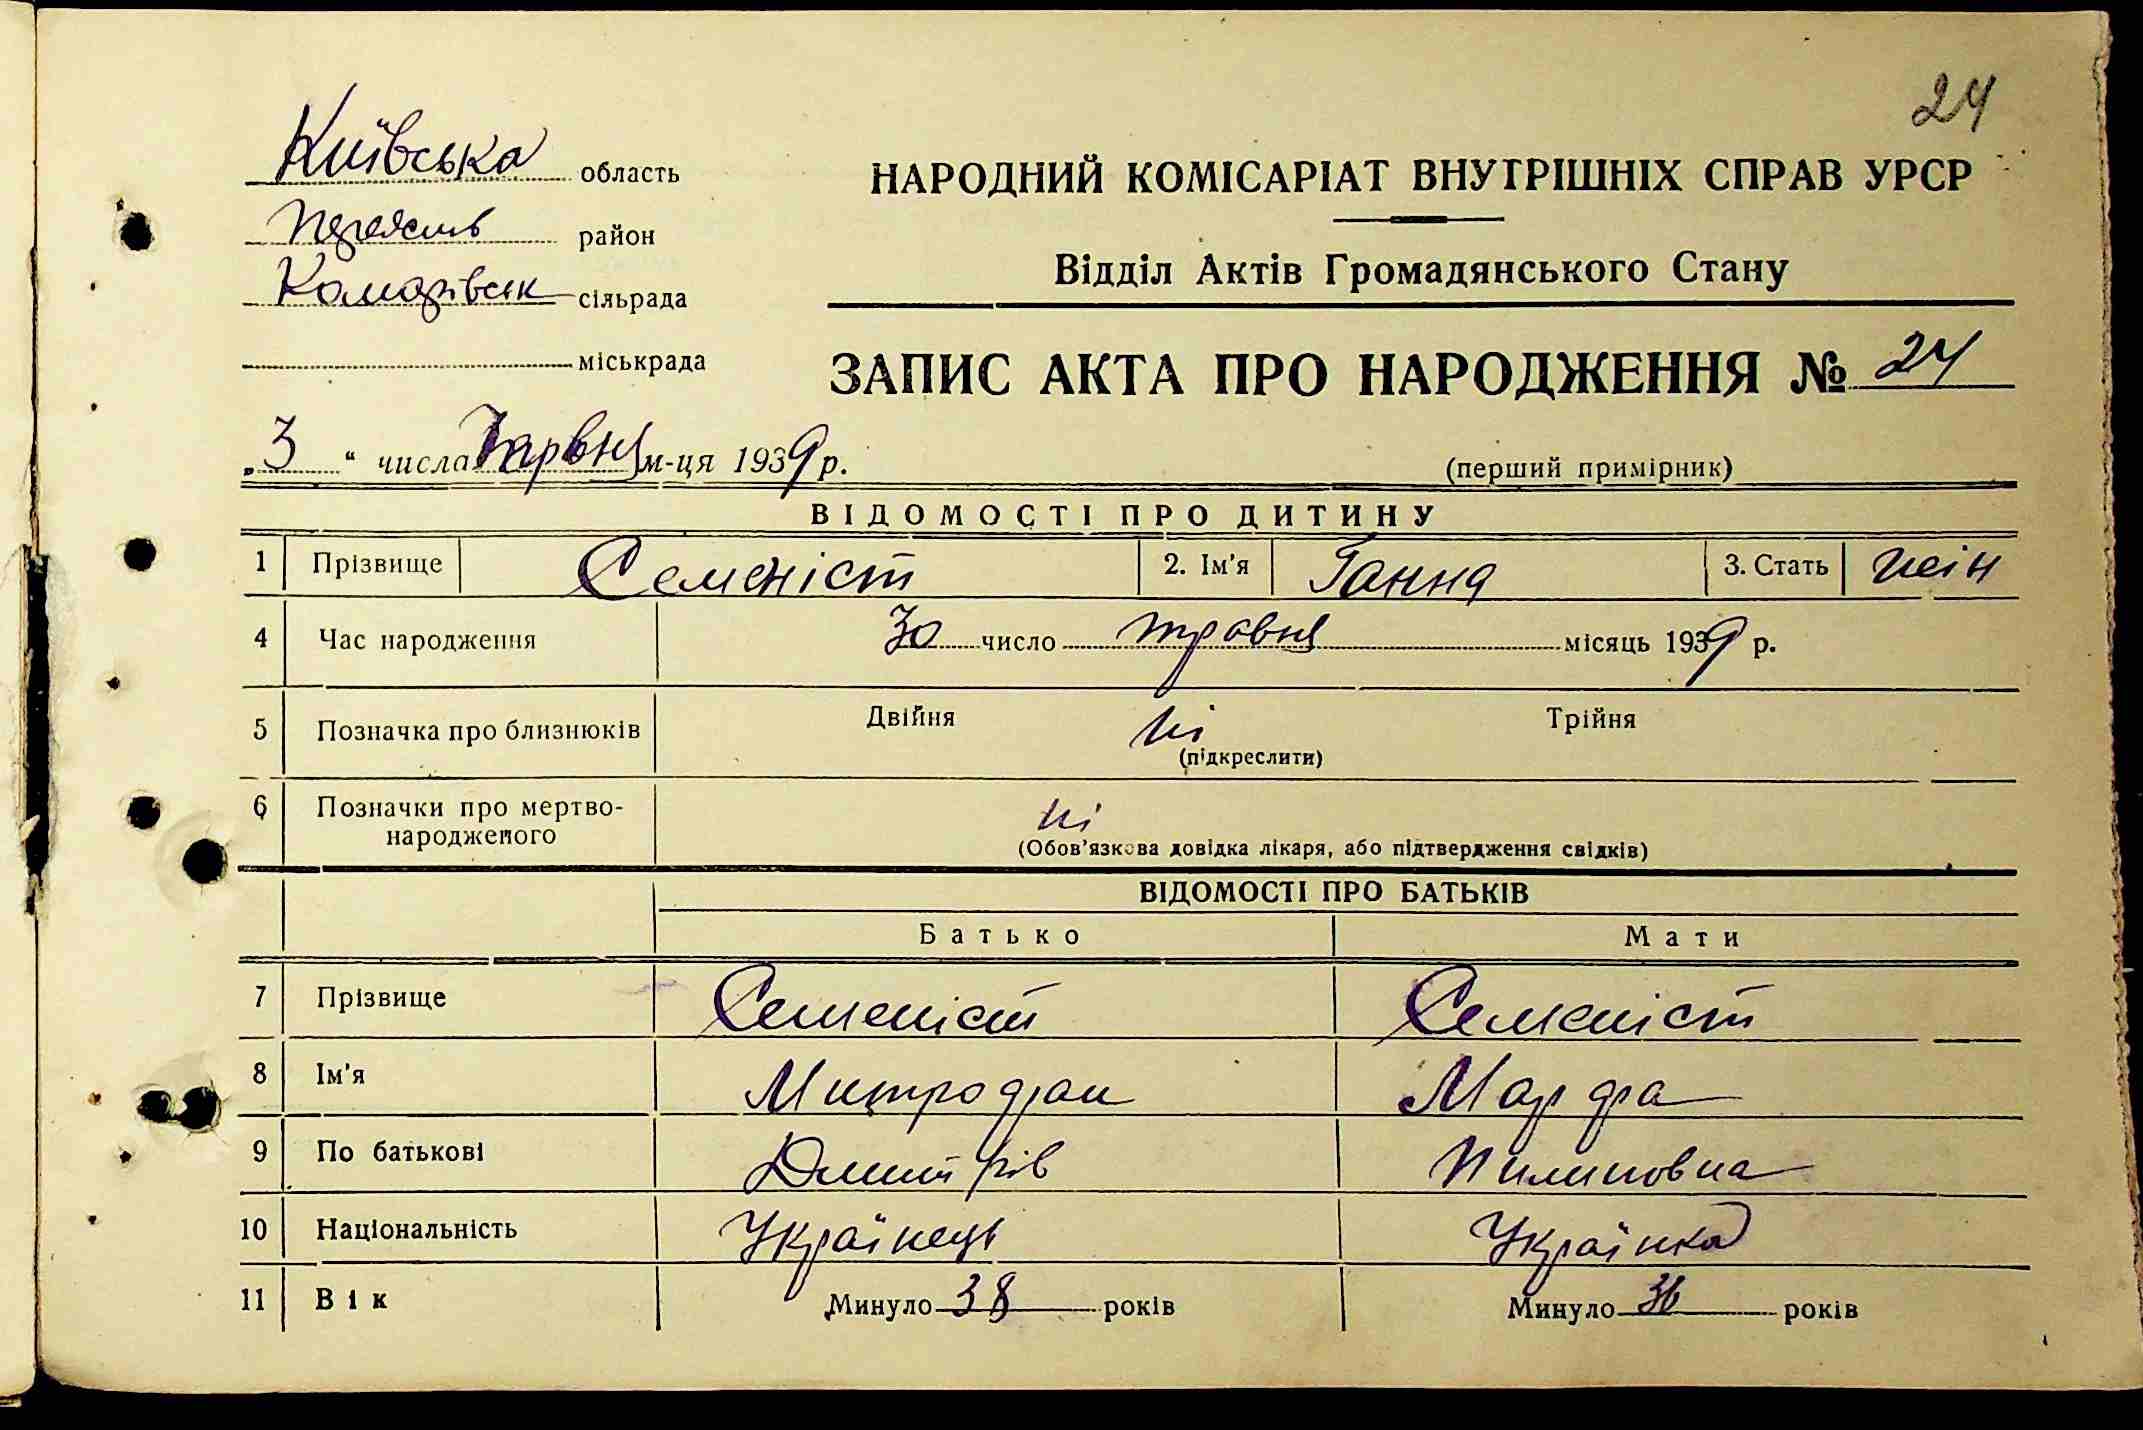 24
Київська область
Переяслів район
Комарівськ сільрада
міськрада
НАРОДНИЙ КОМІСАРІАТ ВНУТРІШНІХ СПРАВ УРСР
Відділ Актів Громадянського Стану
ЗАПИС АКТА ПРО НАРОДЖЕННЯ № 24
„3“ числа Червня м-ця 1939 р.
(перший примірник)
ВІДОМОСТІ ПРО ДИТИНУ
1 Прізвище Семеніст 2. Ім'я Ганна 3. Стать жін
4 Час народження 30 число травня місяць 1939 р.
5 Позначка про близнюків Двійня ні Трійня
(підкреслити)
6 Позначки про мертво-
народженого ні
(Обов'язкова довідка лікаря, або підтвердження свідків)
ВІДОМОСТІ ПРО БАТЬКІВ
Батько Мати
7 Прізвище Семеніст Семеніст
8 Ім'я Митрофан Марфа
9 По батькові Дмитрів Пилиповна
10 Національність Українець Українка
11 Вік Минуло 38 років Минуло 36 років